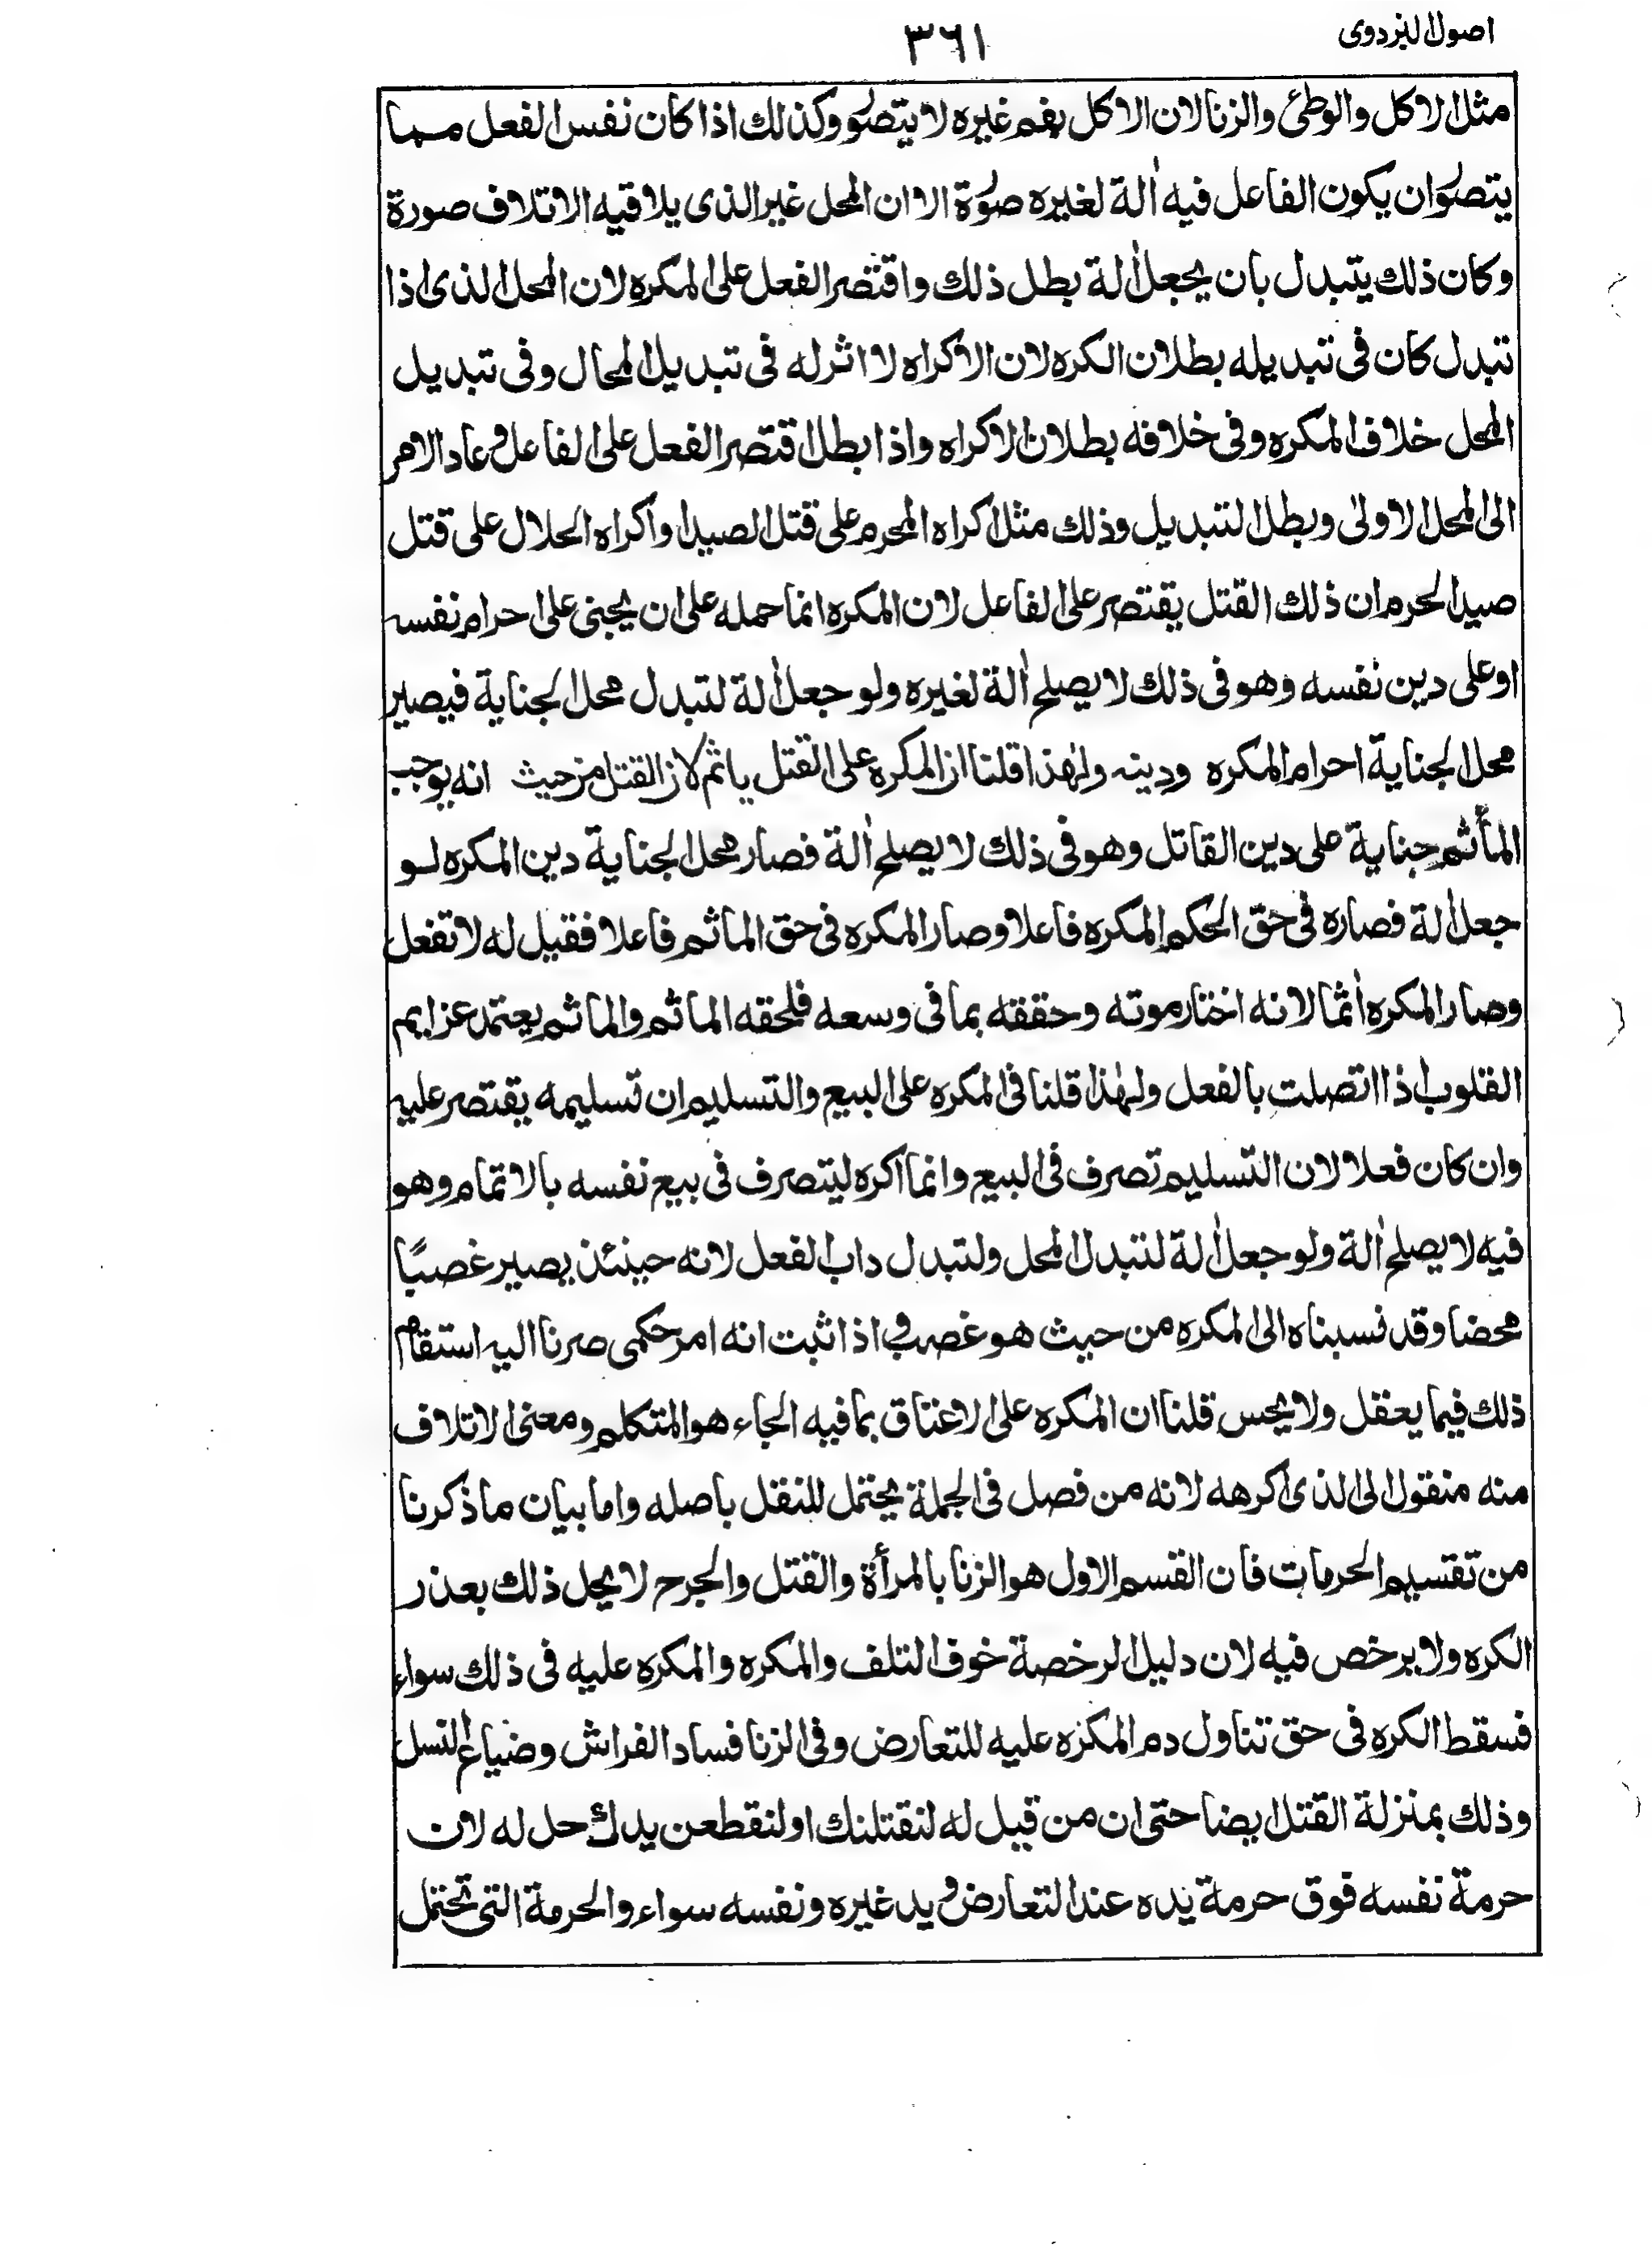 اصول البزدوى
٣٦١
مثل الاكل والوطئ والزنا لان الاكل بفم غيره لا يتصور وكذلك اذا كان نفس الفعل مما
يتصور ان يكون الفاعل فيه اٰلة لغيره صورة الا ان المحل غير الذى يلاقيه الاتلاف صورة
وكان ذلك يتبدل بان يجعل اٰلة بطل ذلك واقتصر الفعل على المكره لان المحل الذى اذا
تبدل كان فى تبديله بطلان الكره لان الاكراه لا اثر له فى تبديل المحال وفى تبديل
المحل خلاف المكره وفى خلافه بطلان الاكراه واذا بطل اقتصر الفعل على الفاعل وعاد الامر
الى المحل الاولى وبطل التبديل وذلك مثل اكراه المحرم على قتل الصيد او اكراه الحلال على قتل
صيد الحرم ان ذلك القتل يقتصر على الفاعل لان المكره انما حمله على ان يجنى على احرام نفسه
او على دين نفسه وهو فى ذلك لا يصلح اٰلة لغيره ولو جعل اٰلة لتبدل محل الجناية فيصير
محل الجناية احرام المكره ودينه ولهٰذا قلنا ان المكره على القتل ياثم لان القتل من حيث انه يوجب
المأثم جناية على دين القاتل وهو فى ذلك لا يصلح اٰلة فصار محل الجناية دين المكره لو
جعل اٰلة فصاره فى حقّ الحكم المكره فاعلا وصار المكره فى حق الماثم فاعلا فقيل له لا تفعل
وصار المكره اٰثما لانه اختار موته وحققه بما فى وسعه فلحقه الماثم والماثم يعتمد عزايم
القلوب اذا اتصلت بالفعل ولهٰذا قلنا فى المكره على البيع والتسليم ان تسليمه يقتصر عليه
وان كان فعلا لان التسليم تصرف فى البيع وانما اكره ليتصرف فى بيع نفسه بالاتمام وهو
فيه لا يصلح اٰلة ولو جعل اٰلة لتبدل المحل ولتبدل داب الفعل لانه حينئذ يصير غصبًا
محضا وقد نسبناه الى المكره من حيث هو غصب و اذا ثبت انه امر حكمى صرنا اليه استقام
ذلك فيما يعقل ولا يحس قلنا ان المكره على الاعتاق بما فيه الجاء هو المتكلم ومعنى الاتلاف
منه منقول الى الذى اكرهه لانه من فصل فى الجملة يحتمل للنقل باصله واما بيان ما ذكرنا
من تقسيم الحرمات فان القسم الاول هو الزنا بالمرأة والقتل والجرح لا يحل ذلك بعذر
الكره ولا يرخص فيه لان دليل الرخصة خوف التلف والمكره والمكره عليه فى ذلك سواء
فسقط الكره فى حق تناول دم المكره عليه للتعارض وفى الزنا فساد الفراش وضياع النسل
وذلك بمنزلة القتل ايضا حتى ان من قيل له لنقتلنك او لنقطعن يدك حل له لان
حرمة نفسه فوق حرمة يده عند التعارض ويد غيره ونفسه سواء والحرمة التى تحتمل